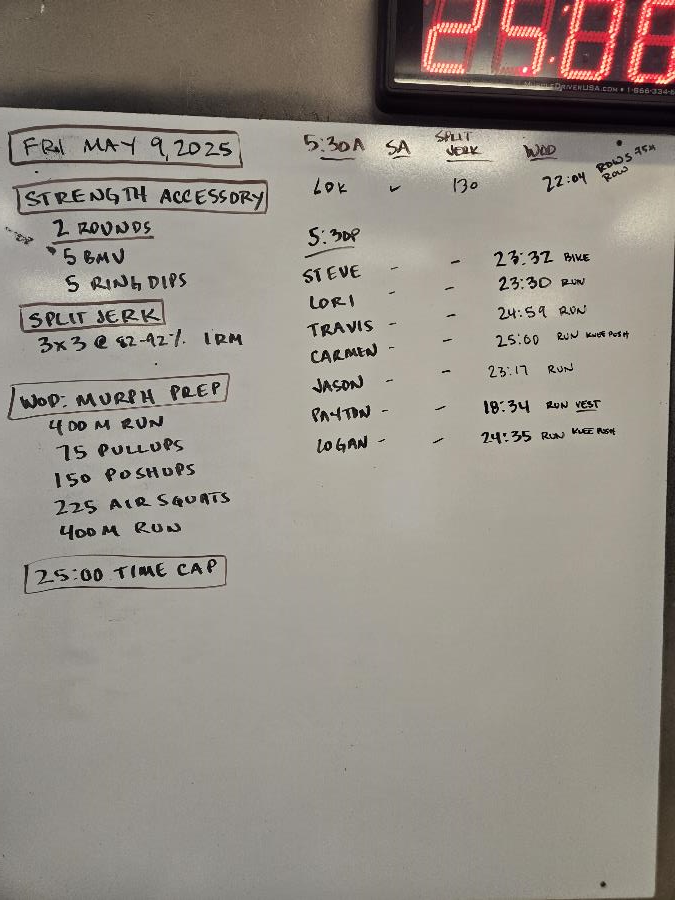 25:00
FRI MAY 9, 2025
STRENGTH ACCESSORY
2 ROUNDS
5 BMU
5 RING DIPS
SPLIT JERK
3x3 @ 82-92% 1RM
WOD: MURPH PREP
400 M RUN
75 PULLUPS
150 PUSHUPS
225 AIR SQUATS
400 M RUN
25:00 TIME CAP
5:30A SA SPLIT JERK WOD
LOK ✓ 130 22:04 ROWS 75# ROW
5:30P
STEVE - - 23:32 BIKE
LORI - - 23:30 RUN
TRAVIS - - 24:59 RUN
CARMEN - - 25:00 RUN KNEE PUSH
JASON - - 23:17 RUN
PAYTON - - 18:34 RUN VEST
LOGAN - - 24:35 RUN KNEE PUSH